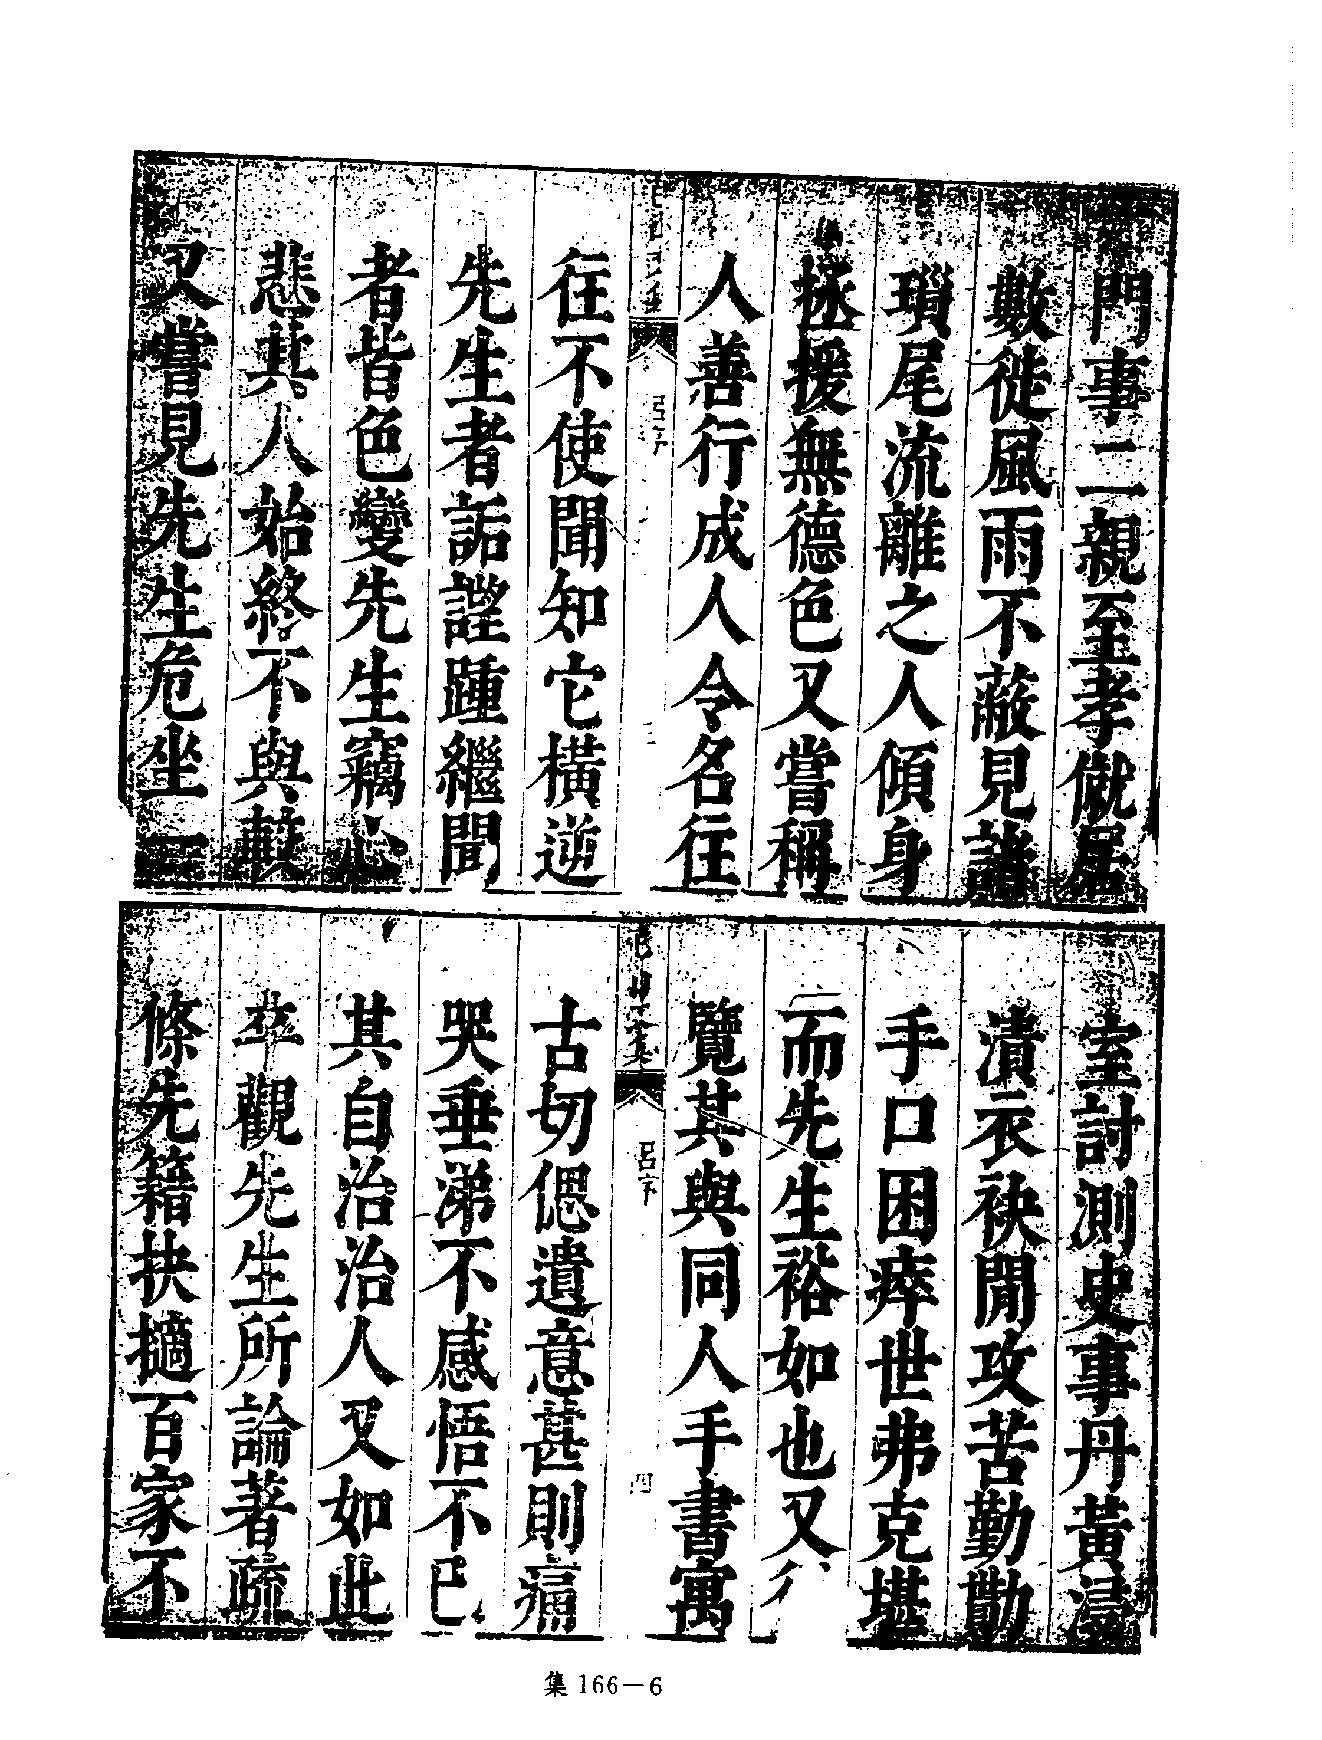 門事二親至孝僦居
數徙風雨不蔽見諸
瑣尾流離之人傾身
拯援無德色又嘗稱
人善行成人令名往
三
往不使聞知它橫逆
先生者詬謹踵繼聞
者皆色變先生竊心
悲其人始終不與較
又嘗見先生危坐一
室討測史事丹黃浸
漬衣袂閒攻苦勤勩
手口困瘁世弗克堪
而先生裕如也又
覽其與同人手書寓
呂序
四
古切偲遺意甚則痛
哭垂涕不感悟不已
其自治治人又如此
卒觀先生所論著疏
條先籍抉擿百家不
集 166－6